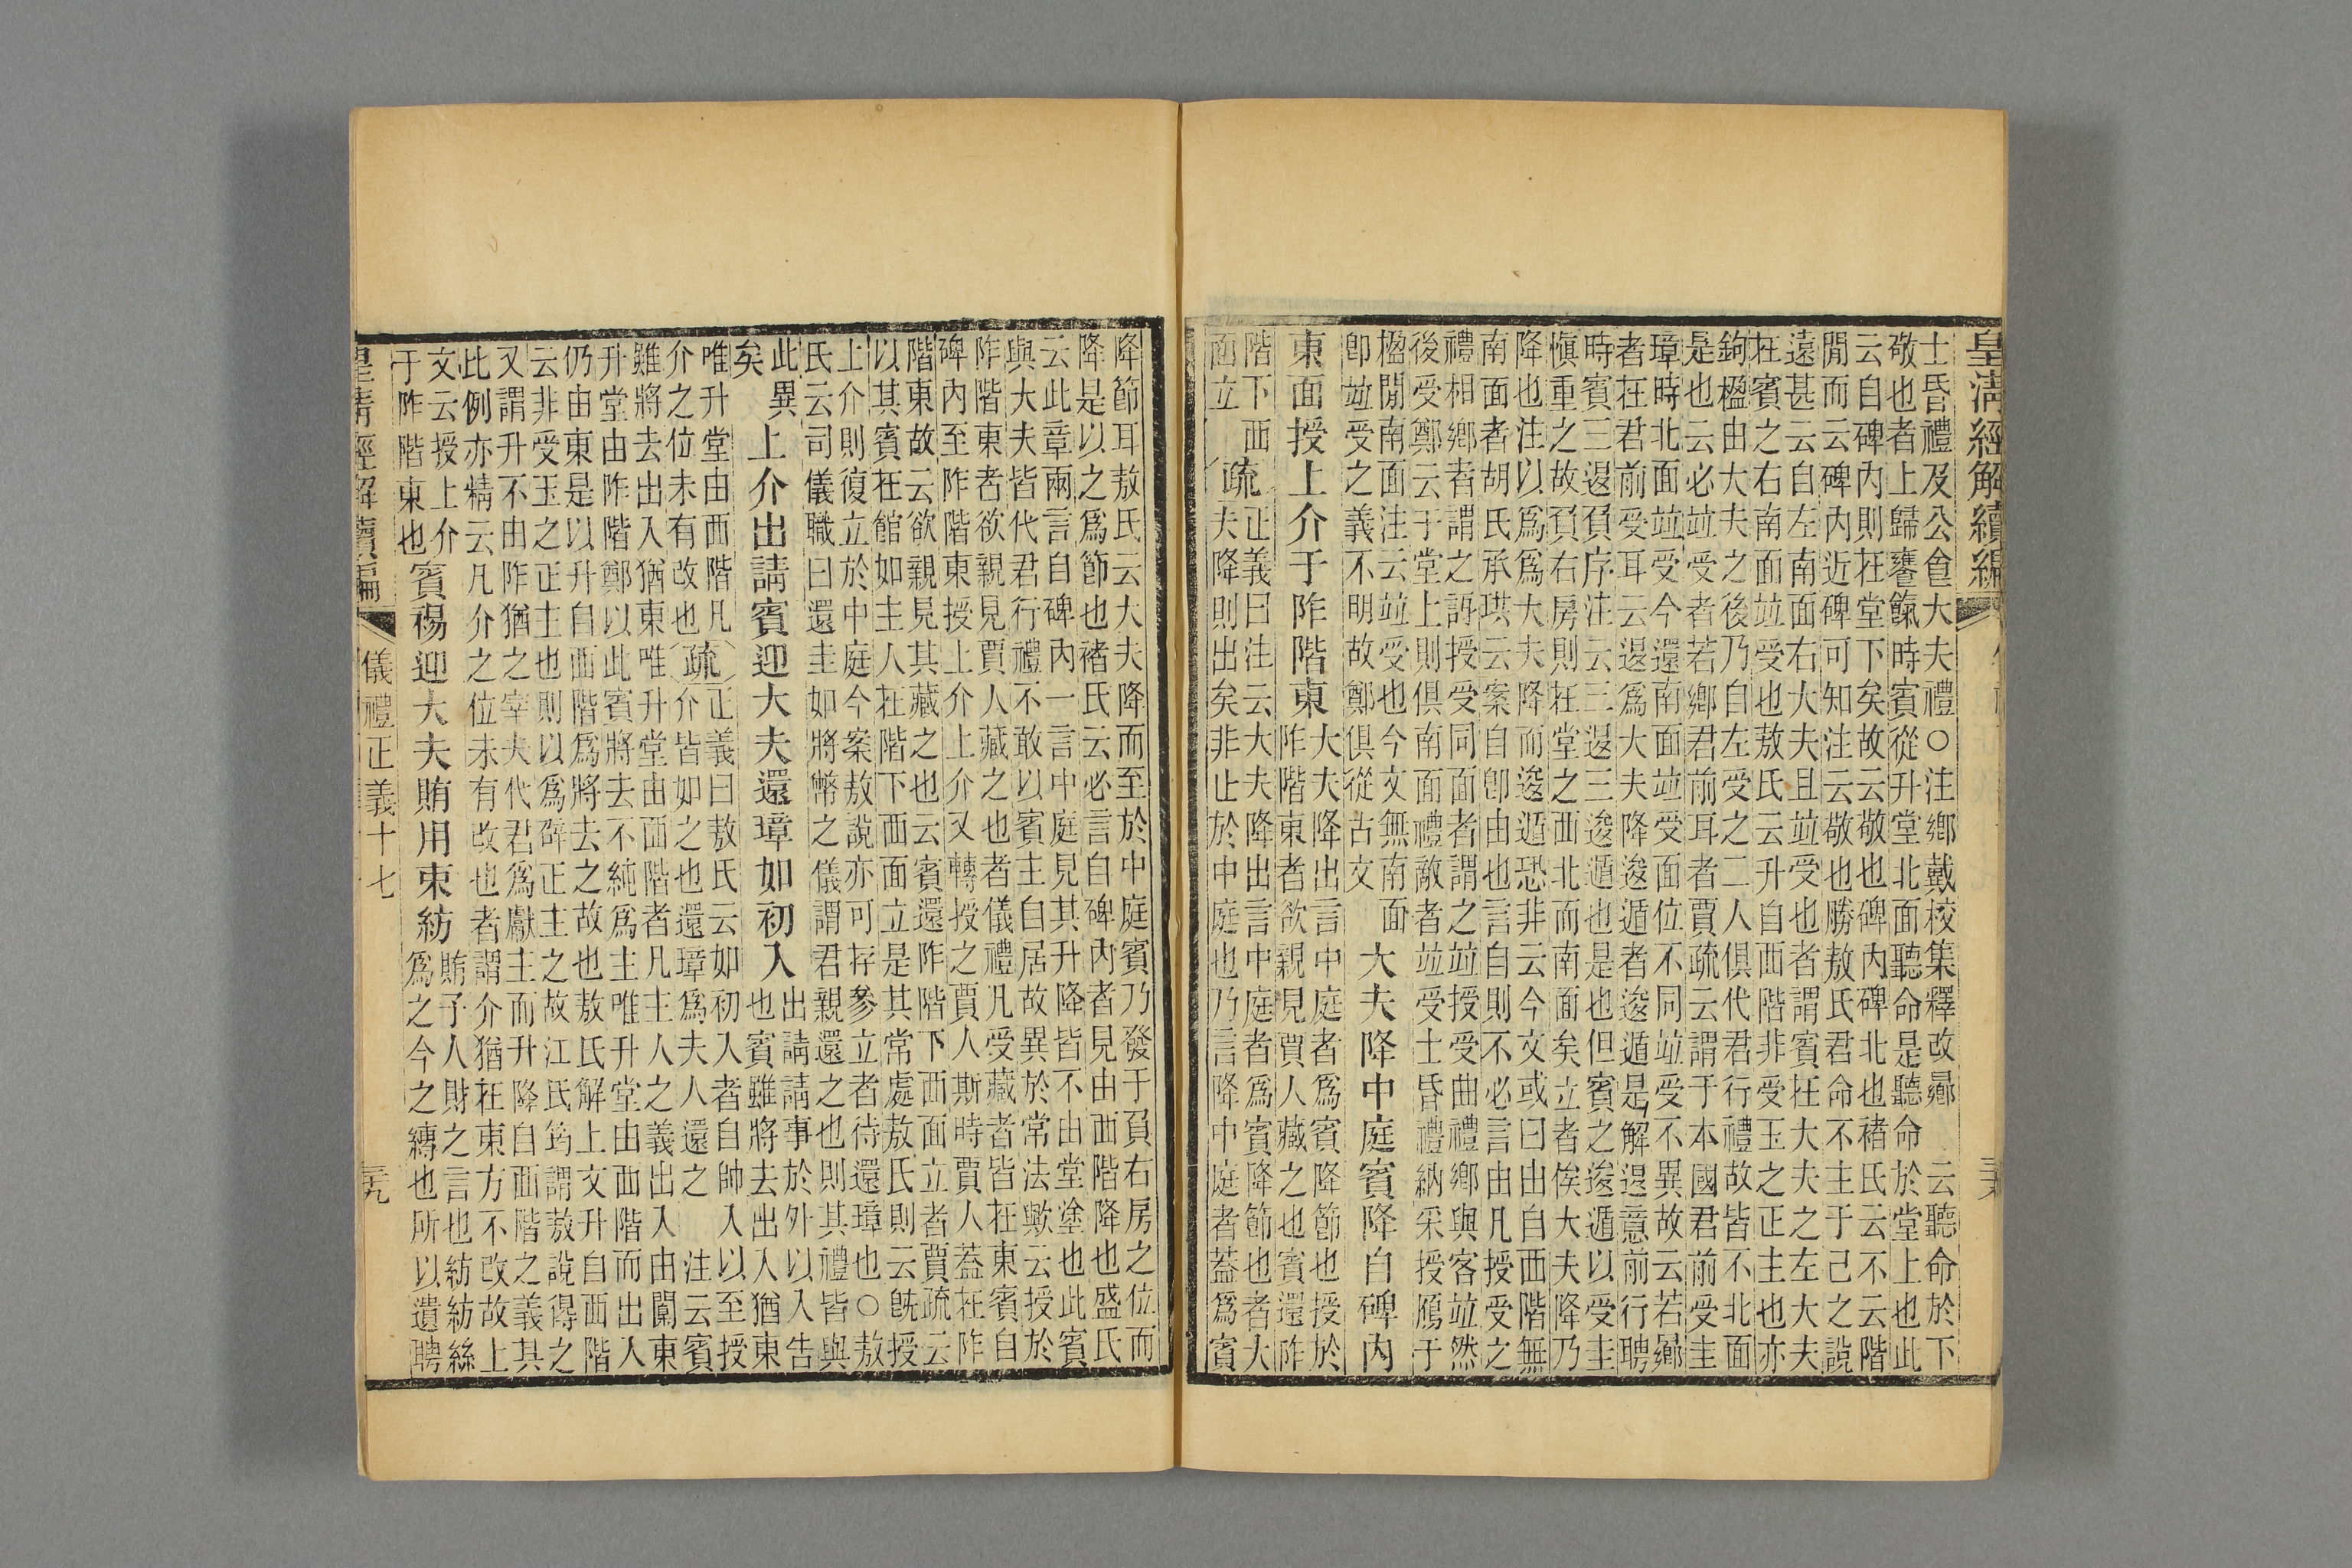 皇清經解續編
士昏禮及公食大夫禮○注鄉戴校集釋改曏 云聽命於下
敬也者上歸饔餼時賓從升堂北面聽命是聽命於堂上也此
云自碑內則在堂下矣故云敬也碑內碑北也褚氏云不云階
閒而云碑內近碑可知注云敬也勝敖氏君命不主于己之說
遠甚云自左南面右大夫且並受也者謂賓在大夫之左大夫
在賓之右南面並受也敖氏云升自西階非受玉之正主也亦
鉤楹由大夫之後乃自左受之二人俱代君行禮故皆不北面
是也云必並受者若鄉君前耳者賈疏云謂于本國君前受圭
璋時北面並受今還南面並受面位不同並受不異故云若曏
者在君前受耳云退爲大夫降逡遁者逡遁是解退意前行聘
時賓三退負序注云三退三逡遁也是也但賓之逡遁以受圭
愼重之故負右房則在堂之西北而南面矣立者俟大夫降乃
降也注以爲爲大夫降而逡遁恐非云今文或曰由自西階無
南面者胡氏承珙云案自卽由也言自則不必言由凡授受之
禮相鄉者謂之訝授受同面者謂之並授受曲禮鄉與客並然
後受鄭云于堂上則俱南面禮敵者並受士昏禮納采授鴈于
楹閒南面注云並受也今文無南面
卽並受之義不明故鄭俱從古文
大夫降中庭賓降自碑內
東面授上介于阼階東
大夫降出言中庭者爲賓降節也授於
阼階東者欲親見賈人藏之也賓還阼
階下西
面立
疏
正義曰注云大夫降出言中庭者爲賓降節也者大
夫降則出矣非止於中庭也乃言降中庭者蓋爲賓
三八
降節耳敖氏云大夫降而至於中庭賓乃發于負右房之位而
降是以之爲節也褚氏云必言自碑內者見由西階降也盛氏
云此章兩言自碑內一言中庭見其升降皆不由堂塗也此賓
與大夫皆代君行禮不敢以賓主自居故異於常法歟云授於
阼階東者欲親見賈人藏之也者儀禮凡受藏者皆在東賓自
碑內至阼階東授上介上介又轉授之賈人斯時賈人蓋在阼
階東故云欲親見其藏之也云賓還阼階下西面立者賈疏云
以其賓在館如主人在階下西面立是其常處敖氏則云旣授
上介則復立於中庭今案敖說亦可存參立者待還璋也○敖
氏云司儀職曰還圭如將幣之儀謂君親還之也則其禮皆與
此異
矣
上介出請賓迎大夫還璋如初入
出請請事於外以入告
也賓雖將去出入猶東
唯升堂由西階凡
介之位未有改也
疏
正義曰敖氏云如初入者自帥入以至授
介皆如之也還璋爲夫人還之 注云賓
雖將去出入猶東唯升堂由西階者凡主人之義出入由闑東
升堂由阼階鄭以此賓將去不純爲主唯升堂由西階而出入
仍由東是以升自西階爲將去之故也敖氏解上文升自西階
云非受玉之正主也則以爲辟正主之故江氏筠謂敖說得之
又謂升不由阼猶之宰夫代君爲獻主而升降自西階之義其
此例亦精云凡介之位未有改也者謂介猶在東方不改故上
文云授上介
于阼階東也
賓裼迎大夫賄用束紡
賄予人財之言也紡紡絲
爲之今之縳也所以遺聘
皇清經解續編
儀禮正義十七
三九